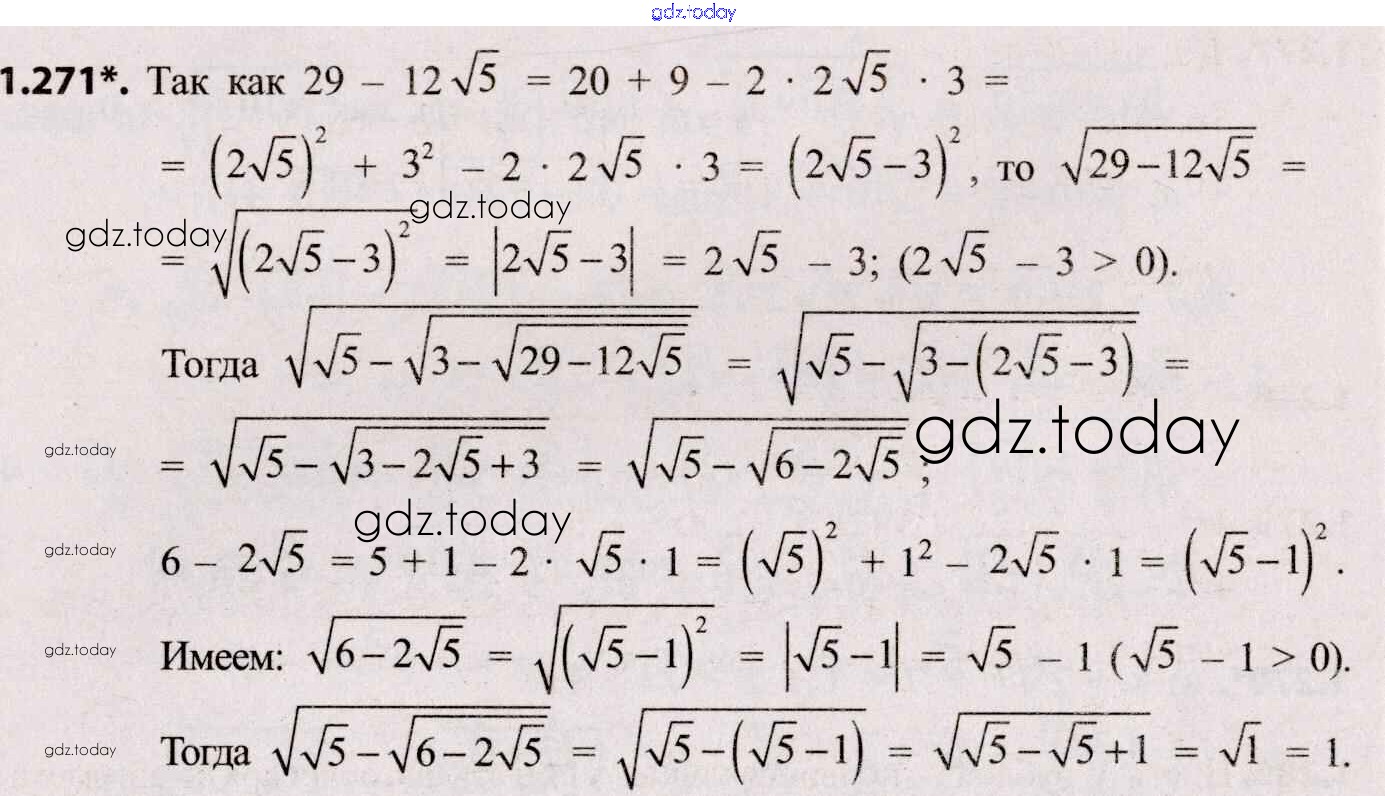 gdz.today
1.271*. Так как 29 – 12√5 = 20 + 9 – 2 · 2√5 · 3 =
= (2√5)² + 3² – 2 · 2√5 · 3 = (2√5 – 3)², то √(29 – 12√5) =
gdz.today
gdz.today
= √((2√5 – 3)²) = |2√5 – 3| = 2√5 – 3; (2√5 – 3 > 0).
Тогда √(√5 – √(3 – √(29 – 12√5))) = √(√5 – √(3 – (2√5 – 3))) =
gdz.today
gdz.today
= √(√5 – √(3 – 2√5 + 3)) = √(√5 – √(6 – 2√5));
gdz.today
gdz.today
6 – 2√5 = 5 + 1 – 2 · √5 · 1 = (√5)² + 1² – 2√5 · 1 = (√5 – 1)².
gdz.today
Имеем: √(6 – 2√5) = √((√5 – 1)²) = |√5 – 1| = √5 – 1 (√5 – 1 > 0).
gdz.today
Тогда √(√5 – √(6 – 2√5)) = √(√5 – (√5 – 1)) = √(√5 – √5 + 1) = √1 = 1.